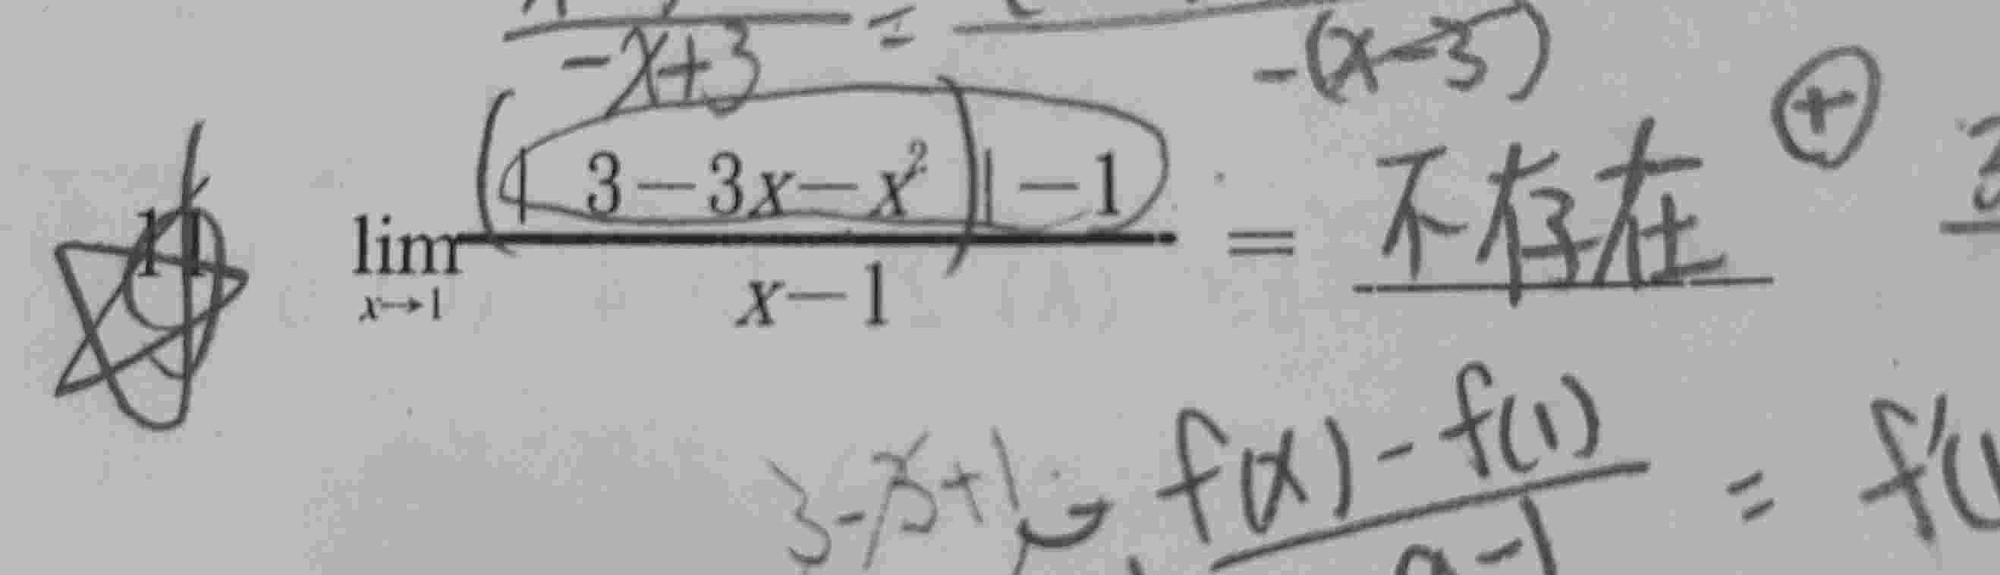 -x+3 =
-(x-3)
11 lim x→1 (| 3-3x-x²)|-1 / x-1 = 不存在 ⊕ 3
3-x+1 f(x)-f(1) / -1 = f'(1